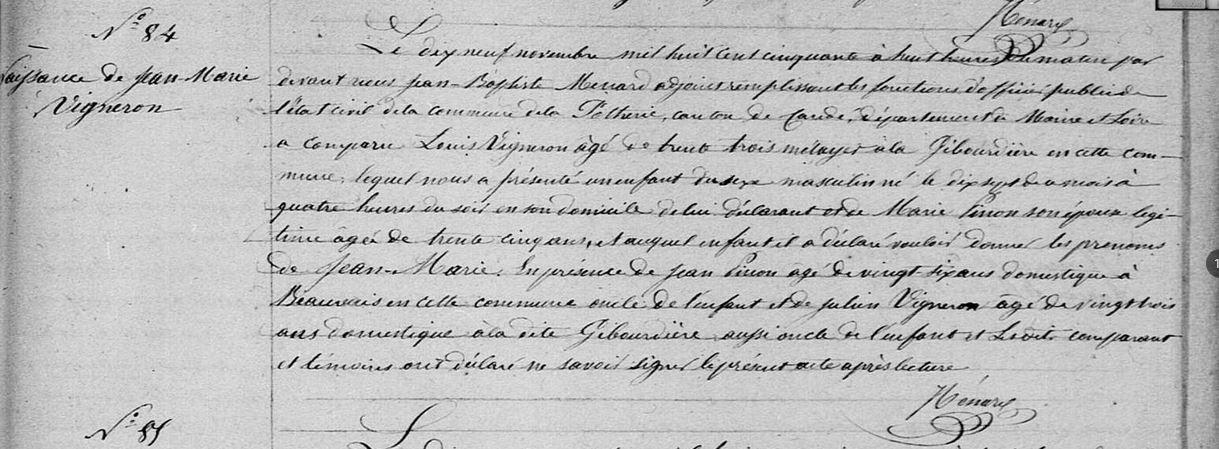 N° 84
Naissance de Jean-Marie
Vigneron
Le dix neuf novembre mil huit cent cinquante à huit heures du matin par
devant nous Jean-Baptiste Menard adjoint remplissant les fonctions d'officier public de
l'état civil de la commune de la Potherie, canton de Candé, département de Maine et Loire
a comparu Louis Vigneron âgé de trente trois métayer à la Gibourdière en cette com-
mune, lequel nous a présenté un enfant du sexe masculin né le dix sept de ce mois à
quatre heures du soir en son domicile de lui déclarant et de Marie Pinon son épouse légi-
time âgée de trente cinq ans, et auquel enfant il a déclaré vouloir donner les prenoms
de Jean-Marie. En présence de Jean Pinon âgé de vingt six ans domestique à
Beauvais en cette commune oncle de l'enfant et de Julien Vigneron âgé de vingt trois
ans domestique à la dite Gibourdière aussi oncle de l'enfant et Lesdits comparant
et témoins ont déclaré ne savoir signer le présent acte après lecture
Ménard
N° 85